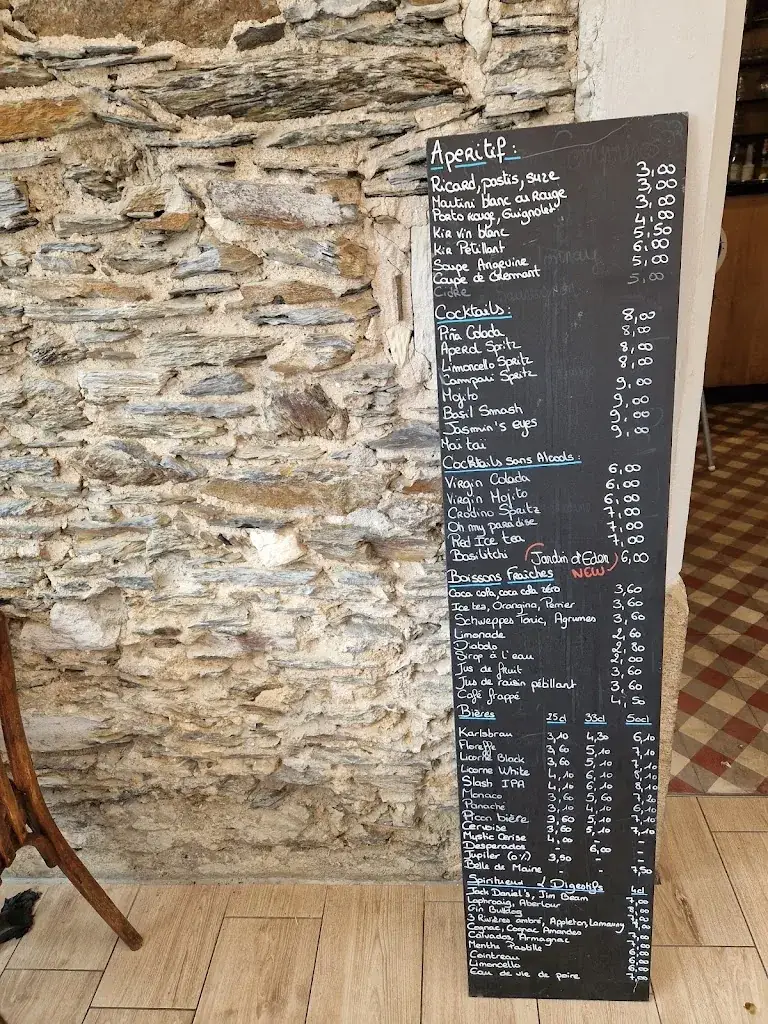 Aperitif :
Ricard, pastis, suze 3,00
Martini blanc ou Rouge 3,00
Porto rouge, Guignolet 3,00
Kir vin blanc 4,80
Kir Pétillant 5,50
Soupe Angevine 6,00
Coupe de Crémant 5,00
Cidre 5,00
Cocktails :
Piña Colada 8,00
Aperol Spritz 8,00
Limoncello Spritz 8,00
Campari Spritz 8,00
Mojito 9,00
Basil Smash 9,00
Jasmin's eyes 9,00
Maï taï 9,00
Cocktails sans Alcools :
Virgin Colada 6,00
Virgin Mojito 6,00
Crodino Spritz 6,00
Oh my paradise 7,00
Red Ice tea 7,00
Basilitchi 7,00
Jardin d'Eden 6,00
NEW
Boissons Fraîches
Coca cola, coca cola zéro 3,60
Ice tea, Orangina, Perrier 3,60
Schweppes Tonic, Agrumes 3,60
Limonade 2,60
Diabolo 2,80
Sirop à l'eau 2,00
Jus de fruit 3,60
Jus de raisin pétillant 3,60
Café frappé 4,50
Bières 25cl 33cl 50cl
Karlsbrau 3,10 4,30 6,10
Floreffe 3,60 5,10 7,10
Licorne Black 3,60 5,10 7,10
Licorne White 4,10 6,10
Slash IPA 4,10 6,10
Monaco 3,60 5,60 7,20
Panaché 3,10 4,10 6,10
Picon bière 3,60 5,10 7,10
Cervoise 3,60 5,10 7,10
Mystic Cerise 4,00 - -
Desperados - 6,00 -
Jupiler (0%) 3,50 - -
Belle de Maine - - 7,50
Spiritueux & Digestifs 4cl
Jack Daniel's, Jim Beam 7,00
Laphroaig, Aberlour
Gin Bulldog
3 Rivières ambré, Appleton,
Cognac, Cognac Amandes
Calvados, Armagnac
Menthe Pastille
Cointreau 6,00
Limoncello 6,00
Eau de vie de poire 7,00